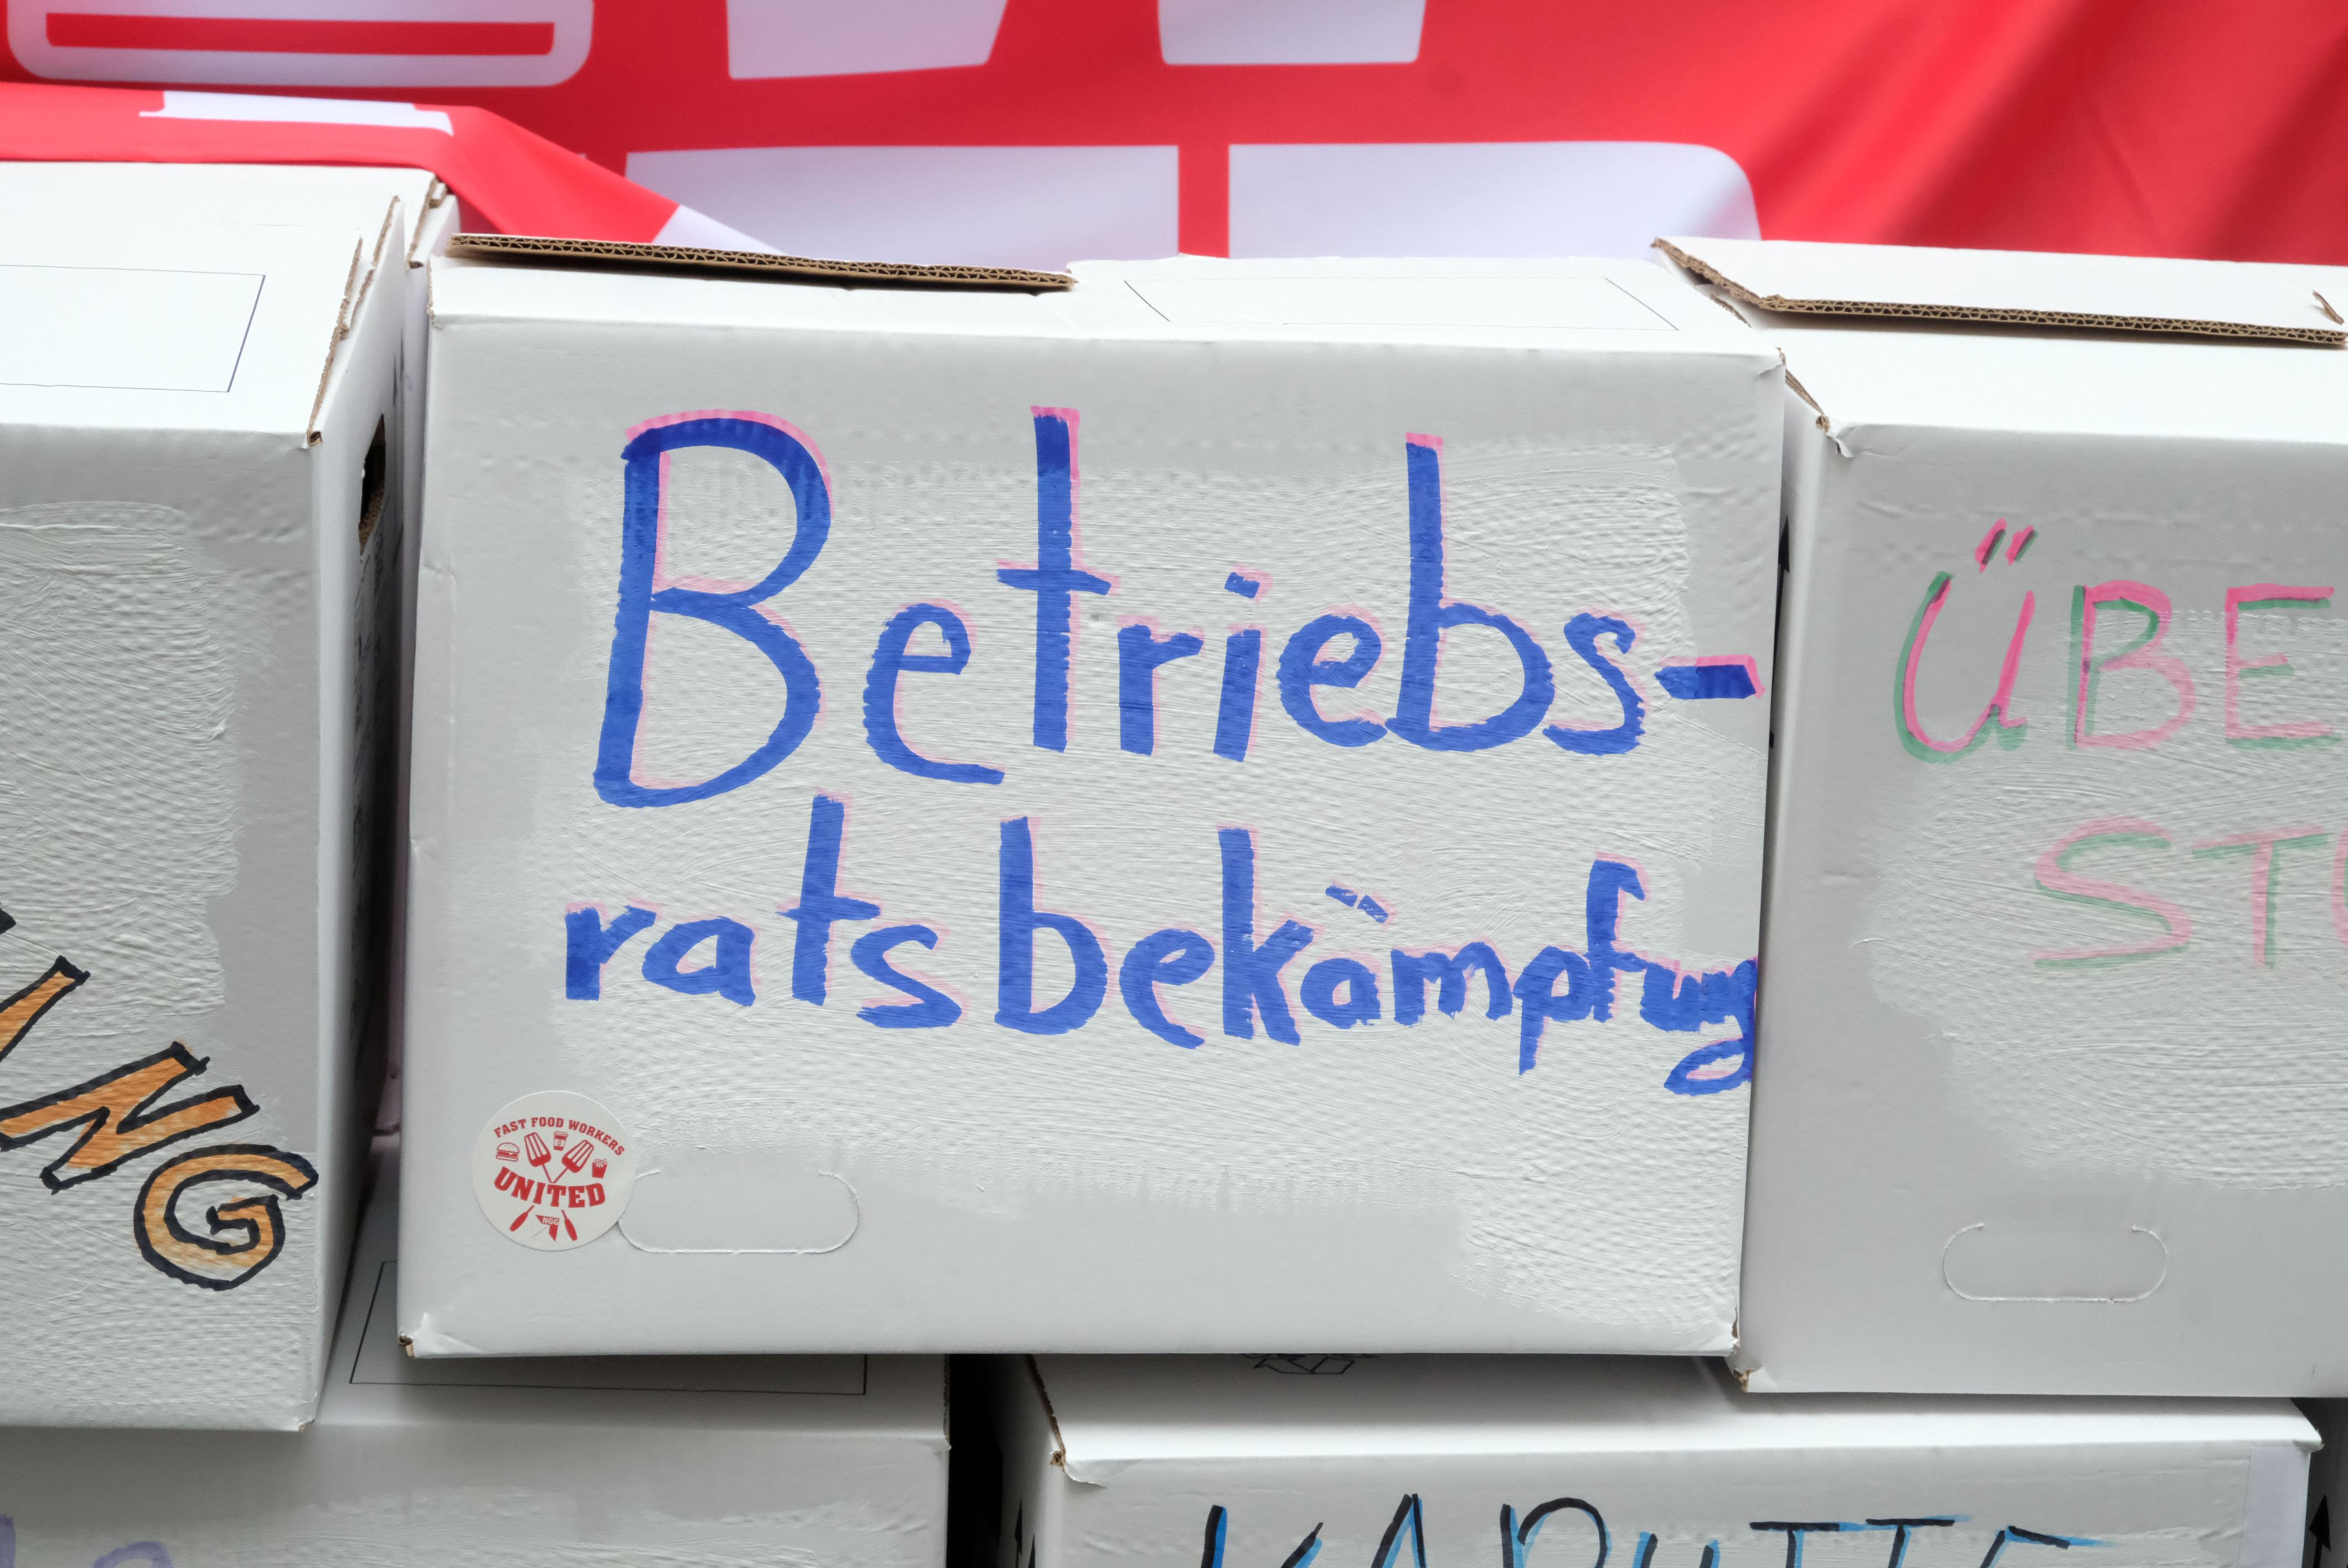 Betriebs-
ratsbekämpfung
FAST FOOD WORKERS
UNITED
NGG
ÜBE
ST
NG
KAPUTTE